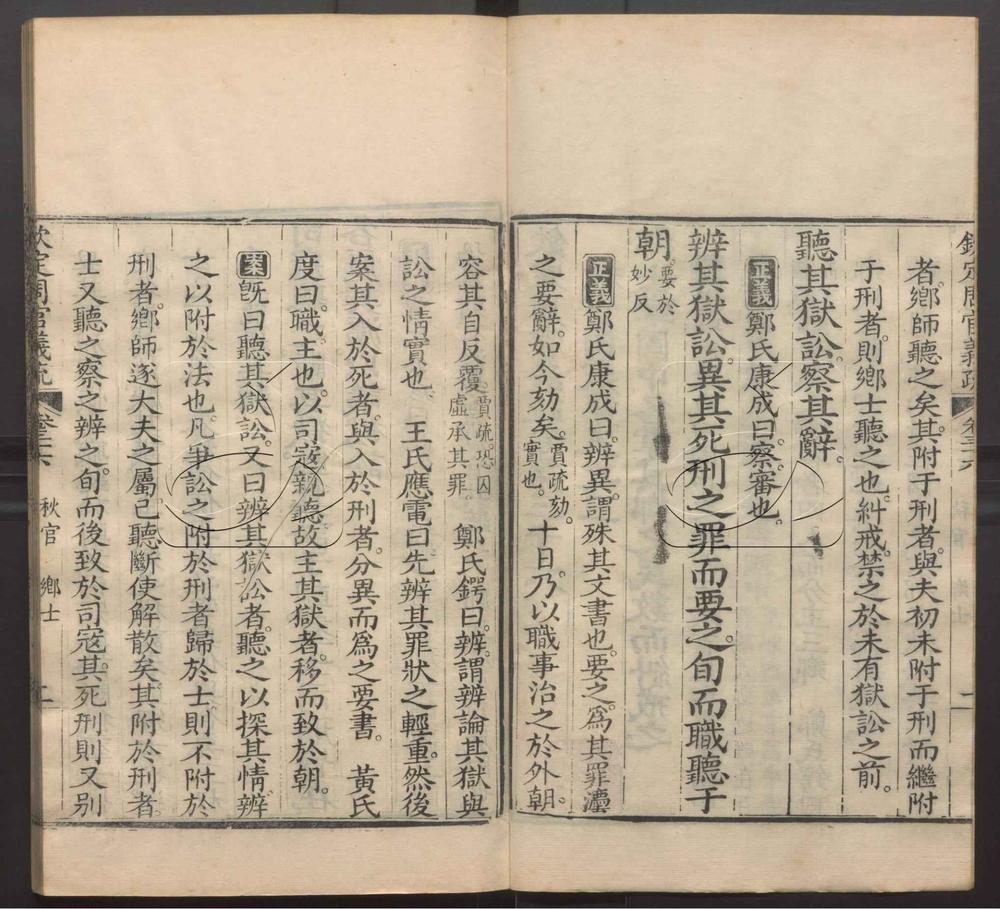 欽定周官義疏 卷三十六 一
者。鄉師聽之矣。其附于刑者。與夫初未附于刑而繼附
于刑者。則鄉士聽之也。糾戒禁之於未有獄訟之前。
聽其獄訟。察其辭。
正義 鄭氏康成曰。察。審也。
辨其獄訟。異其死刑之罪而要之。旬而職聽于
朝。要於妙反
正義 鄭氏康成曰。辨異。謂殊其文書也。要之。為其罪灋
之要辭。如今劾矣。賈疏。劾。實也。十日乃以職事治之於外朝。
容其自反覆。賈疏。恐囚虛承其罪。 鄭氏鍔曰。辨。謂辨論其獄與
訟之情實也。 王氏應電曰。先辨其罪狀之輕重。然後
案其入於死者。與入於刑者。分異而為之要書。 黃氏
度曰。職。主也。以司寇親聽。故主其獄者。移而致於朝。
案 既曰聽其獄訟。又曰辨其獄訟者。聽之以探其情。辨
之以附於法也。凡爭訟之附於刑者歸於士。則不附於
刑者。鄉師遂大夫之屬。已聽斷使解散矣。其附於刑者。
士又聽之察之辨之。旬而後致於司寇。其死刑則又別
欽定周官義疏 卷三十六 秋官 鄉士